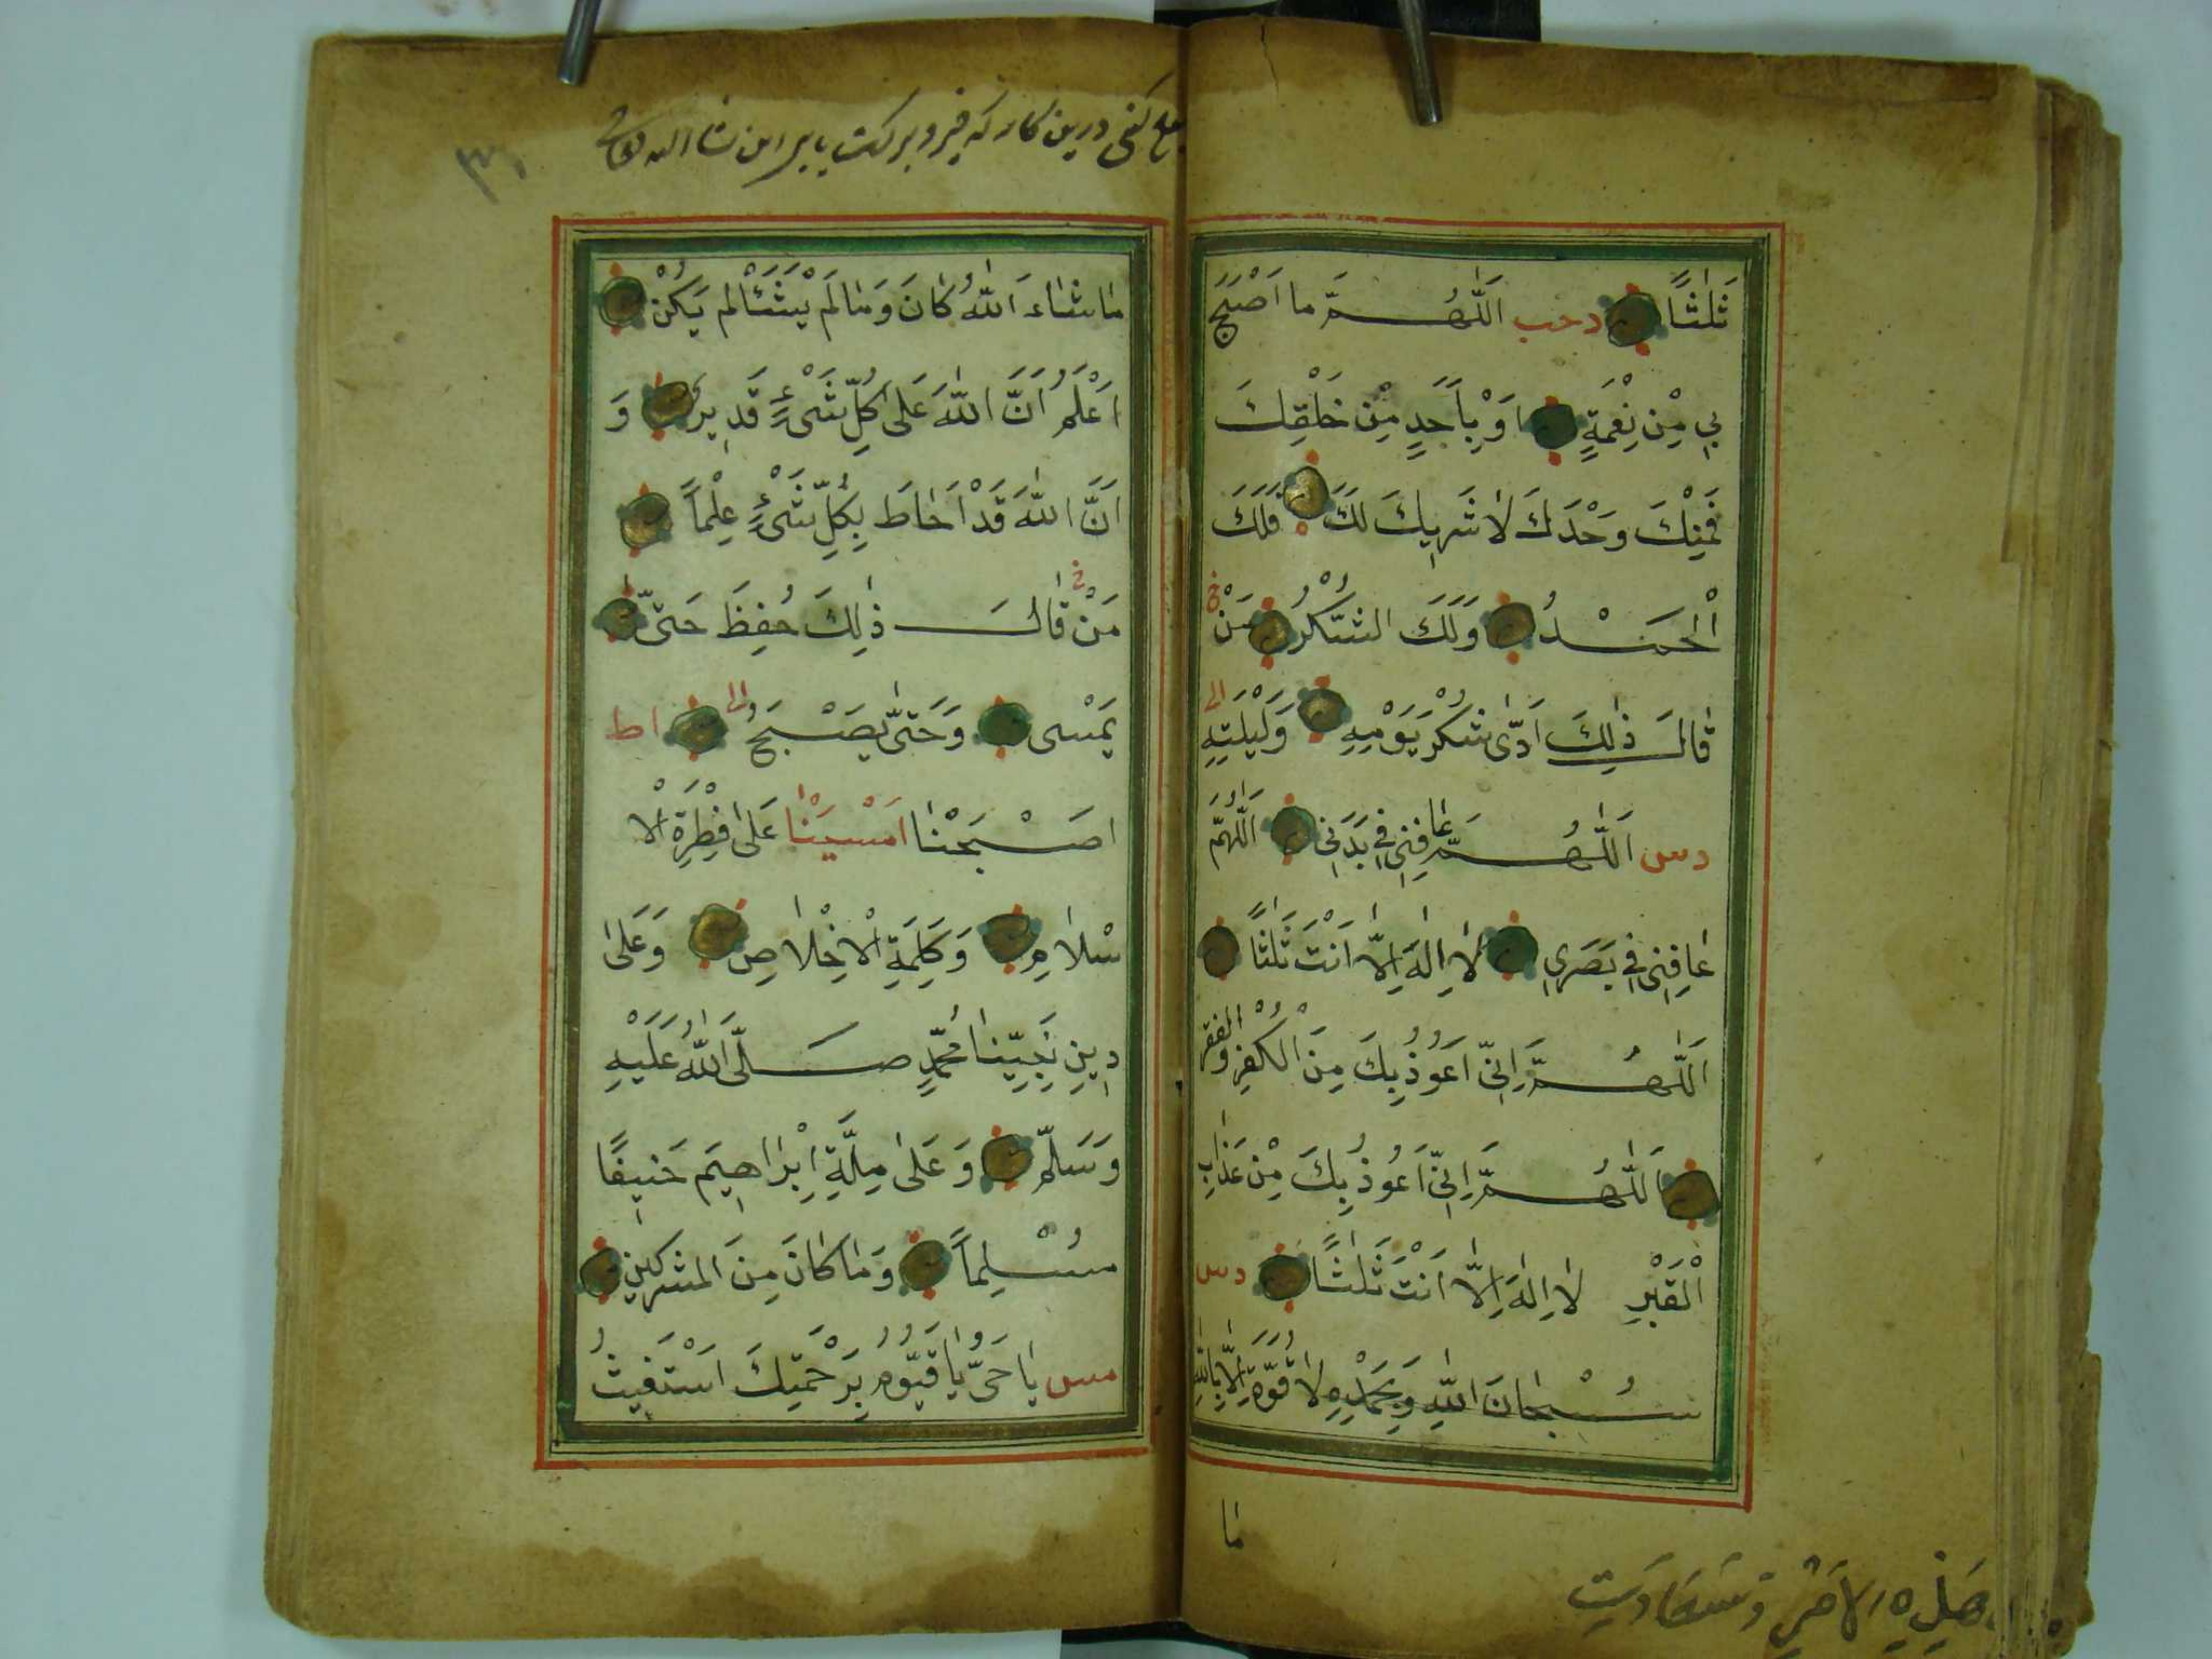 ثَلٰثًا دحب اَللّٰهُمَّ ما اَصْبَحَ
بِي مِنْ نِعْمَةٍ اَوْ بِاَحَدٍ مِنْ خَلْقِكَ
فَمِنْكَ وَحْدَكَ لَا شَرِيكَ لَكَ فَلَكَ
الْحَمْدُ وَلَكَ الشُّكْرُ مَنْ
قَالَ ذٰلِكَ اَدّٰى شُكْرَ يَوْمِهِ وَلَيْلَتِهِ
دس اَللّٰهُمَّ عَافِنِي فِي بَدَنِي اَللّٰهُمَّ
عَافِنِي فِي بَصَرِي لَا اِلٰهَ اِلَّا اَنْتَ ثَلٰثًا
اَللّٰهُمَّ اِنِّي اَعُوذُ بِكَ مِنَ الْكُفْرِ وَالْفَقْرِ
اَللّٰهُمَّ اِنِّي اَعُوذُ بِكَ مِنْ عَذَابِ
الْقَبْرِ لَا اِلٰهَ اِلَّا اَنْتَ ثَلٰثًا دس
سُبْحَانَ اللّٰهِ وَبِحَمْدِهِ لَا قُوَّةَ اِلَّا بِاللّٰهِ
مَا
مَا شَاءَ اللّٰهُ كَانَ وَمَا لَمْ يَشَأْ لَمْ يَكُنْ
اَعْلَمُ اَنَّ اللّٰهَ عَلٰى كُلِّ شَيْءٍ قَدِيرٌ وَ
اَنَّ اللّٰهَ قَدْ اَحَاطَ بِكُلِّ شَيْءٍ عِلْمًا
مَنْ قَالَ ذٰلِكَ حُفِظَ حَتّٰى
يُمْسٰى وَحَتّٰى يُصْبِحَ اط
اَصْبَحْنَا اَمْسَيْنَا عَلٰى فِطْرَةِ الْاِ
سْلَامِ وَكَلِمَةِ الْاِخْلَاصِ وَعَلٰى
دِينِ نَبِيِّنَا مُحَمَّدٍ صَلَّى اللّٰهُ عَلَيْهِ
وَسَلَّمَ وَعَلٰى مِلَّةِ اِبْرَاهِيمَ حَنِيفًا
مُسْلِمًا وَمَا كَانَ مِنَ الْمُشْرِكِينَ
مس يَا حَيُّ يَا قَيُّومُ بِرَحْمَتِكَ اَسْتَغِيثُ